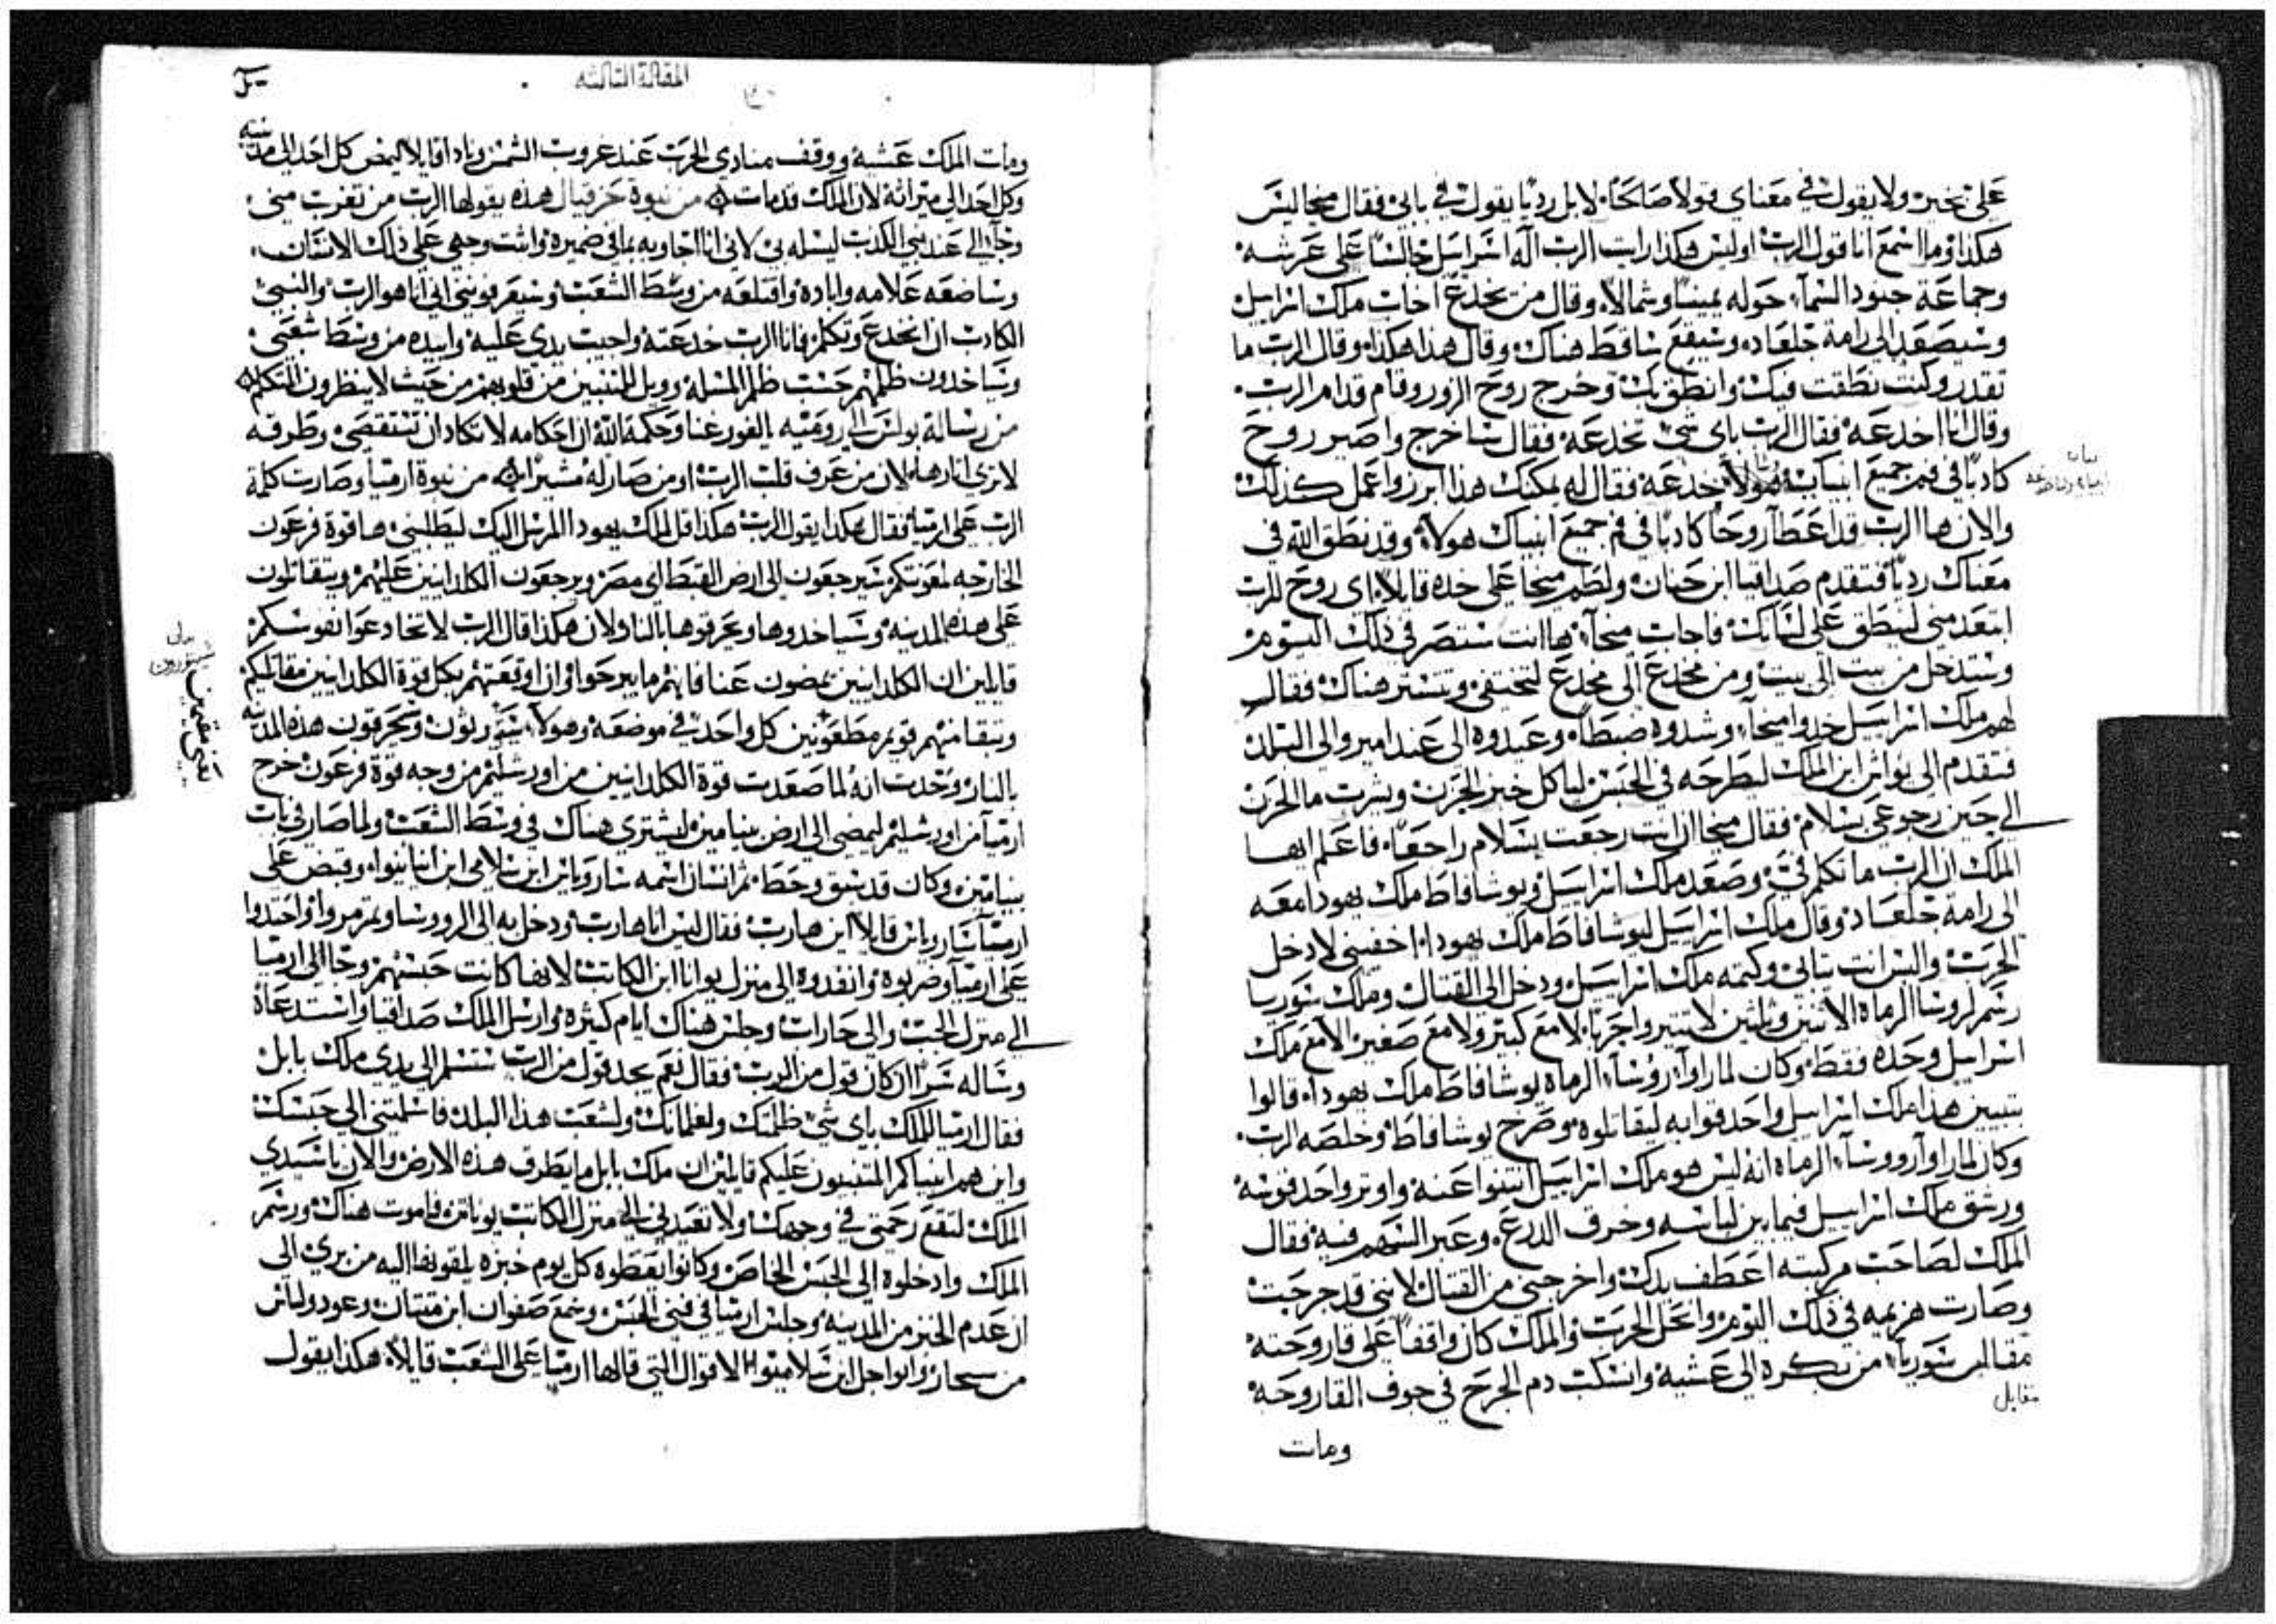 على بخير ولا يقول في معناي قولاً صالحًا لا بل رديًا يقول في بابي فقال ميخا ليس
هكذا وما اسمع انا قول الرب اوليس هكذا رايت الرب اله اسراييل جالسًا على عرشه
وجماعة جنود السماء حوله يمينًا وشمالاً وقال من يخدع اخاب ملك اسراييل
وسيصعد الى رامة جلعاد وسيقع ساقط هناك وقال هذا هكذا وقال الرب ما
تقدر وكنت نطقت فيك وانطق بك وخرج روح الزور وقام قدام الرب
وقال انا اخدعه فقال الرب باى شي تخدعه فقال ساخرج واصير روح
كاذبًا في فم جميع انبيايه هولاء خدعه فقال له يمكنك هذا ابرز واعمل كذلك
والان ها الرب قد اعطا روحًا كادبًا في فم جميع انبياك هولاء وقد نطق الله في
معناك رديًا فتقدم صداقيا ابن حنان ولطم ميخا على خده قايلاً اى روح للرب
ابتعد مني لينطق على لسانك فاجاب ميخا ها انت ستبصر في ذلك اليوم
وستدخل من بيت الى بيت ومن مخدع الى مخدع لتختفي وتستتر هناك فقال
لهم ملك اسراييل خدوا ميخا وشدوه ضبطًا وعيدوه الى عند امير والى البلد
فتقدم الى يواش ابن الملك ليطرحه في الحبس لياكل خبز الحزن ويشرب ما الحزن
الى حين رجوعى بسلام فقال ميخا ان انت رجعت بسلام راجعًا فاعلم ايها
الملك ان الرب ما تكلم في وصعد ملك اسراييل ويوشافاط ملك يهودا معه
الى رامة جلعاد وقال ملك اسراييل ليوشافاط ملك يهودا اخفيني لادخل
الحرب والبس انت ثيابي وكتمه ملك اسراييل ودخل الى القتال وملك سوريا
رسم لروسا الرماه الاثنين وثلثين لا تثيروا حربًا لا مع كبير ولا مع صغير الا مع ملك
اسراييل وحده فقط وكان لما راوا روسا الرماه يوشافاط ملك يهودا قالوا
يتبيين هذا ملك اسراييل واحدقوا به ليقاتلوه وصرخ يوشافاط وخلصه الرب
وكان لما راوا روسا الرماه انه ليس هو ملك اسراييل انثنوا عنه واوتر واحد قوسه
ورشق ملك اسراييل فيما بين لباسه وخرق الدرع وعبر السهم فيه فقال
الملك لصاحب مركبته اعطف يدك واخرجني من القتال لانني قد جرحت
وصارت هزيمه في ذلك اليوم وانحل الحرب والملك كان واقفًا على قاروحته
مقابل سوريا من بكره الى عشيه وانسكب دم الجرح في جوف القاروحه
مقابل
ومات
المقالة الثالثه
ومات الملك عشيه ووقف منادي الحرب عند غروب الشمس ونادا قايلاً ليمض كل احد الى مدينته
وكل احد الى ميراثه لان الملك قد مات من نبوة حزقيال هذه يقولها الرب من تغرب مني
وجا الى عند نبي الكذب ليسله بي لاني انا اجاوبه بما في ضميره واثبت وجهي على ذلك الانسان
وساضعه علامه وابادة واقتلعه من وسط الشعب وستعرفونني اني انا هو الرب والنبي
الكادب ان انخدع وتكلم فانا الرب خدعته واجيب يدي عليه وابيده من وسط شعبي
وسياخدون ظلمهم حسب ظلم المسله وويل للمتنبين من قلوبهم من حيث لا ينظرون التكلم
من رسالة بولس الى رومية يالغور غنا وحكمة الله ان احكامه لا تكاد ان تستقصى وطرقه
لا تري اثارها لان من عرف قلب الرب او من صار له مشيرًا من نبوة ارميا وصارت كلمة
الرب على ارميا فقال هكذا يقول الرب هكذا قل لملك يهودا المرسل اليك ليطلبني ها قوة فرعون
الخارجه لمعونتكم سيرجعون الى ارض القبط اى مصر ويرجعون الكلدانيين عليهم ويتقاتلون
على هذه المدينه وسياخدوها ويحرقوها بالنار والان هكذا قال الرب لا تخادعوا نفوسكم
قايلين ان الكلدانيين يمضون عنا فانهم ما يبرحوا وان اوقعتهم بكل قوة الكلدانيين مقاتليكم
وتبقا منهم قوم مطعونين كل واحد في موضعه وهولاء سيثورون ويحرقون هذه المدينه
بالنار وحدث انه لما صعدت قوة الكلدانيين من اورشليم من وجه قوة فرعون خرج
ارميا من اورشليم ليمضي الى ارض بنيامين ليشتري هناك في وسط الشعب ولما صار في باب
بنيامين وكان قد سبق وحط ثم انسان اسمه ساروياس ابن سلامي ابن انانيوا وقبض على
ارميا ساروياس قايلاً اين هارب فقال ليس انا هارب ودخل به الى الروسا وتمرمروا واحتدوا
على ارميا وضربوه وانفدوه الى منزل يوانا ابن الكاتب لانها كانت حبسهم وجا الى ارميا
الى منزل الجب والى حارات وجلس هناك ايام كثيره وارسل الملك صداقيا واستدعاه
وساله سرًا ان كان قول من الرب فقال نعم يحد قول من الرب ستسلم الى يدي ملك بابل
فقال ارميا للملك باى شي ظلمتك ولغلمانك ولشعب هذا البلد فاسلمتني الى حبسك
واين هم انبياكم المتنبيون عليكم قايلين ان ملك بابل ما يطرق هذه الارض والان ياسيدي
الملك لتقع رحمتي في وجهك ولا تعيدني الى منزل الكاتب يوناثن فاموت هناك ورسم
الملك وادخلوه الى الحبس الخاص وكانوا يعطوه كل يوم خبزه يلقونها اليه من بري الى
ان عدم الخبز من المدينه وجلس ارميا في فنى الحبس وسمع صفوان ابن متتان وعودولياس
من سحار وابواجل ابن سلاميوا الاقوال التي قالها ارميا على الشعب قايلاً هكذا يقول
يعني مقيمين